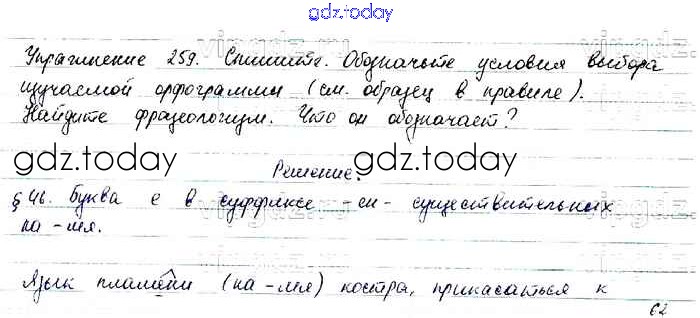 gdz.today
Упражнение 259. Спишите. Обозначьте условия выбора
изучаемой орфограммы (см. образец в правиле).
Найдите фразеологизм. Что он обозначает?
gdz.today gdz.today
Решение.
§ 46. Буква е в суффиксе -ен- существительных
на -мя.
Язык пламени (на -мя) костра, прикасаться к
62